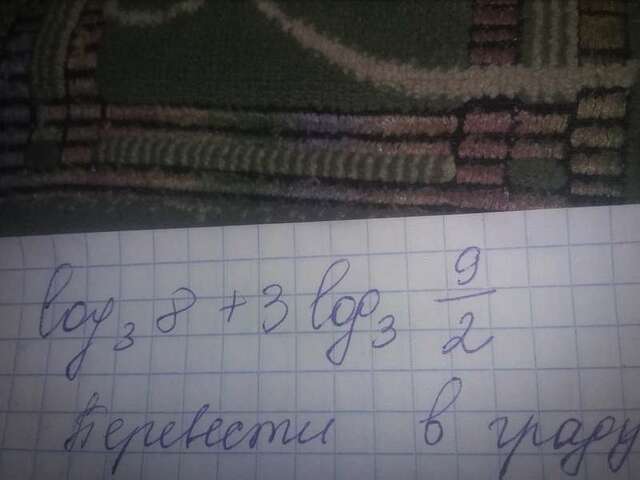 log₃ 8 + 3 log₃ 9/2
Перевести в граду